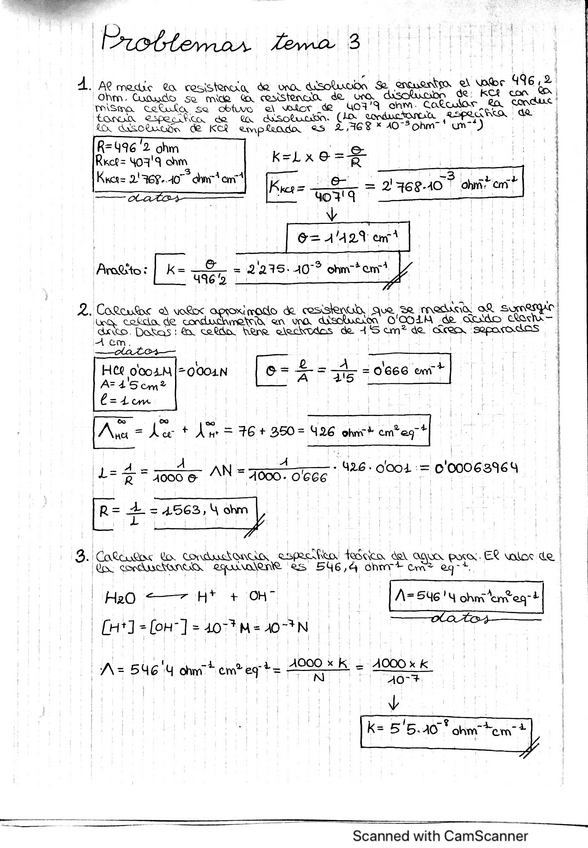 Problemas tema 3
1. Al medir la resistencia de una disolución se encuentra el valor 496,2
ohm. Cuando se mide la resistencia de una disolución de KCl con la
misma celula se obtuvo el valor de 407'9 ohm. Calcular la conduc
tancia específica de la disolución. (La conductancia específica de
la disolución de KCl empleada es 2,768 × 10⁻³ ohm⁻¹ cm⁻¹)
R = 496'2 ohm
RKCl = 407'9 ohm
KKCl = 2'768·10⁻³ ohm⁻¹ cm⁻¹
datos
K = L × θ = θ/R
KKCl = θ/407'9 = 2'768·10⁻³ ohm⁻¹ cm⁻¹
↓
θ = 1'129 cm⁻¹
Analito: K = θ/496'2 = 2'275·10⁻³ ohm⁻¹ cm⁻¹
2. Calcular el valor aproximado de resistencia que se mediría al sumergir
una celda de conductimetría en una disolución 0'001M de ácido clorhí-
drico. Datos: la celda tiene electrodos de 1'5 cm² de área separados
1 cm.
datos
HCl 0'001M = 0'001N
A = 1'5 cm²
l = 1 cm
θ = l/A = 1/1'5 = 0'666 cm⁻¹
Λ∞HCl = λ∞Cl⁻ + λ∞H⁺ = 76 + 350 = 426 ohm⁻¹ cm² eq⁻¹
L = 1/R = 1/1000 θ ΛN = 1/1000·0'666 · 426 · 0'001 = 0'00063964
R = 1/L = 1563,4 ohm
3. Calcular la conductancia específica teórica del agua pura. El valor de
la conductancia equivalente es 546,4 ohm⁻¹ cm² eq⁻¹.
H2O ⟷ H⁺ + OH⁻
Λ = 546'4 ohm⁻¹ cm² eq⁻¹
datos
[H⁺] = [OH⁻] = 10⁻⁷ M = 10⁻⁷ N
Λ = 546'4 ohm⁻¹ cm² eq⁻¹ = 1000 × K/N = 1000 × K/10⁻⁷
↓
K = 5'5·10⁻⁸ ohm⁻¹ cm⁻¹
Scanned with CamScanner